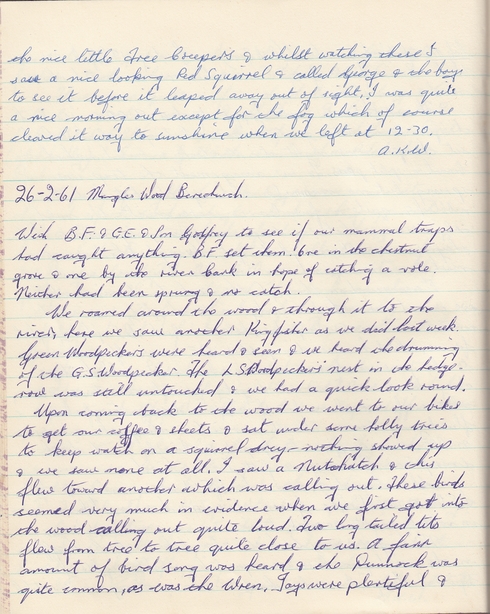 two nice little Tree Creepers & whilst watching these I
saw a nice looking Red Squirrel & called George & the boys
to see it before it leaped away out of sight. I was quite
a nice morning out except for the fog which of course
cleared it way to sunshine when we left at 12-30.
A.K.W.
26-2-61 Wood Berechurch.
With B.F. & G.E. & Son Godfrey to see if our mammal traps
had caught anything. B.F. set them. One in the chestnut
grove & one by the river bank in hope of catching a vole.
Neither had been sprung & no catch.
We roamed around the wood & through it to the
river, here we saw another Kingfisher as we did last week.
Green Woodpeckers were heard & seen & we heard the drumming
of the G.S Woodpecker. The L S Woodpeckers nest in the hedge-
row was still untouched & we had a quick look round.
Upon coming back to the wood we went to our bikes
to get our coffee & sheets & sat under some holly trees
to keep watch on a squirrel drey - nothing showed up
& we saw none at all. I saw a Nuthatch & this
flew toward another which was calling out. These birds
seemed very much in evidence when we first got into
the wood calling out quite loud. Two long tailed tits
flew from tree to tree quite close to us. A fair
amount of bird song was heard & the Dunnock was
quite common, as was the Wren. Jays were plentiful &